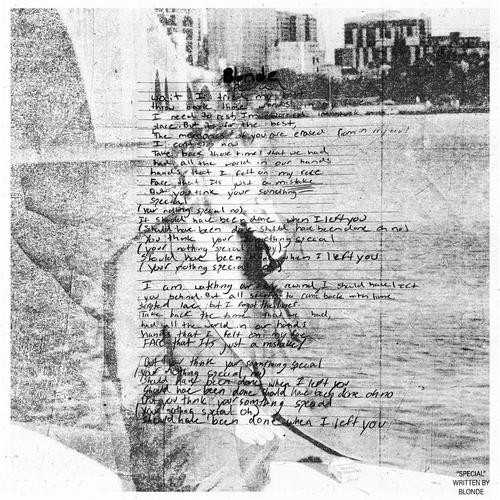 Blonde
wait I tried my best
throw back those words in my face
I need to rest, I'm
place. But it's for the best,
The memories of you are erased from my
I can't sip now
Take back those times that we had
had all the world in our hands
hands that I felt on my face
Face that Its just a mistake
But you think your something
special
(your nothing special no)
It should have been done when I left you
(should have been done should have been done oh no)
You think your something special
(your nothing special
should have been when I left you
(your nothing special
I am watching our rewind, I should have left
you behind. But all seems to come back with time
scripted love, but I forgot the lines.
Take back the time that we had,
had all the world in our hands
hands that I felt on my face
FACE that Its just a mistake/
But you think your something special
(your nothing special no)
should have been done when I left you
should have been done should have been done oh no
But you think your something special
(your nothing special oh)
should have been done when I left you
"SPECIAL"
WRITTEN BY
BLONDE